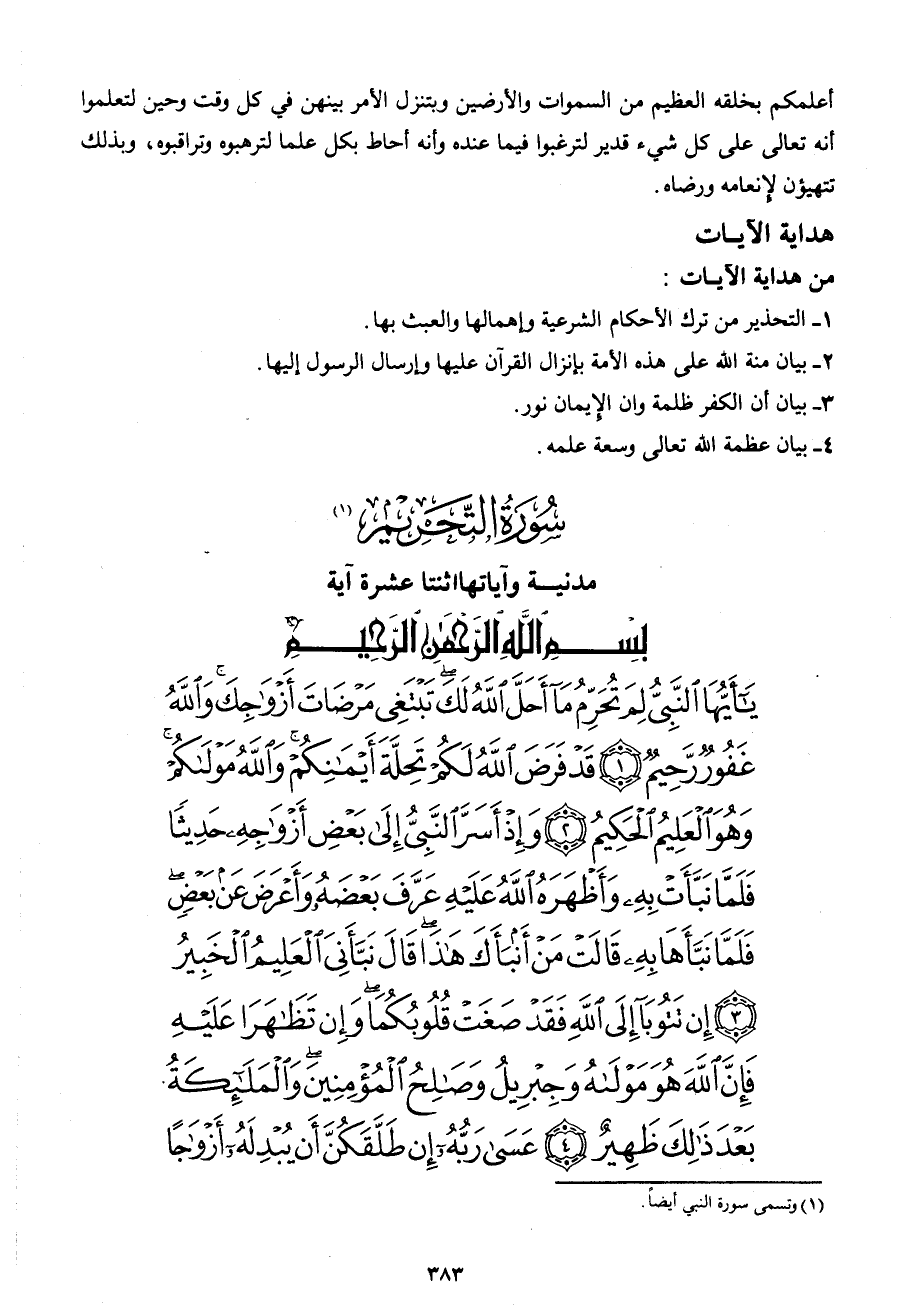 أعلمكم بخلقه العظيم من السموات والأرضين وبتنزل الأمر بينهن في كل وقت وحين لتعلموا
أنه تعالى على كل شيء قدير لترغبوا فيما عنده وأنه أحاط بكل علما لترهبوه وتراقبوه، وبذلك
تتهيؤن لإنعامه ورضاه.
هداية الآيـات
من هداية الآيـات :
١ـ التحذير من ترك الأحكام الشرعية وإهمالها والعبث بها.
٢ـ بيان منة الله على هذه الأمة بإنزال القرآن عليها وإرسال الرسول إليها.
٣ـ بيان أن الكفر ظلمة وان الإيمان نور.
٤ـ بيان عظمة الله تعالى وسعة علمه.
سُورَةُ التَّحْرِيمِ (١)
مدنيـة وآياتها اثنتا عشرة آية
بِسْمِ ٱللَّهِ ٱلرَّحْمَٰنِ ٱلرَّحِيمِ
يَٰٓأَيُّهَا ٱلنَّبِىُّ لِمَ تُحَرِّمُ مَآ أَحَلَّ ٱللَّهُ لَكَۖ تَبْتَغِى مَرْضَاتَ أَزْوَٰجِكَۚ وَٱللَّهُ
غَفُورٌ رَّحِيمٌ ١ قَدْ فَرَضَ ٱللَّهُ لَكُمْ تَحِلَّةَ أَيْمَٰنِكُمْۚ وَٱللَّهُ مَوْلَىٰكُمْۖ
وَهُوَ ٱلْعَلِيمُ ٱلْحَكِيمُ ٢ وَإِذْ أَسَرَّ ٱلنَّبِىُّ إِلَىٰ بَعْضِ أَزْوَٰجِهِۦ حَدِيثًا
فَلَمَّا نَبَّأَتْ بِهِۦ وَأَظْهَرَهُ ٱللَّهُ عَلَيْهِ عَرَّفَ بَعْضَهُۥ وَأَعْرَضَ عَنۢ بَعْضٍۖ
فَلَمَّا نَبَّأَهَا بِهِۦ قَالَتْ مَنْ أَنۢبَأَكَ هَٰذَاۖ قَالَ نَبَّأَنِىَ ٱلْعَلِيمُ ٱلْخَبِيرُ
٣ إِن تَتُوبَآ إِلَى ٱللَّهِ فَقَدْ صَغَتْ قُلُوبُكُمَاۖ وَإِن تَظَٰهَرَا عَلَيْهِ
فَإِنَّ ٱللَّهَ هُوَ مَوْلَىٰهُ وَجِبْرِيلُ وَصَٰلِحُ ٱلْمُؤْمِنِينَۖ وَٱلْمَلَٰٓئِكَةُ
بَعْدَ ذَٰلِكَ ظَهِيرٌ ٤ عَسَىٰ رَبُّهُۥٓ إِن طَلَّقَكُنَّ أَن يُبْدِلَهُۥٓ أَزْوَٰجًا
(١) وتسمى سورة النبي أيضاً.
٣٨٣